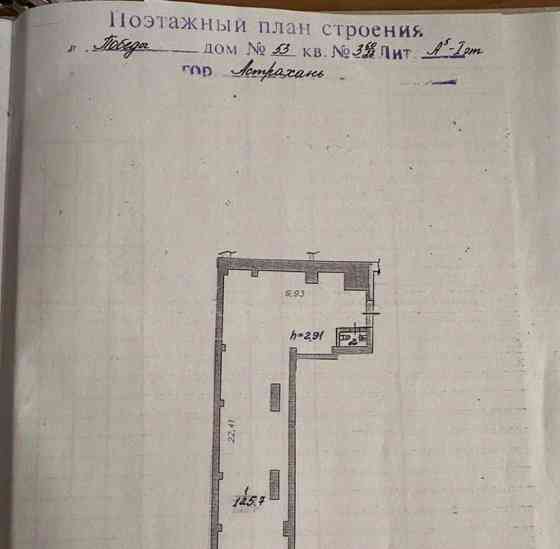 Поэтажный план строения
Победы дом № 53 кв. № Лит А⁵-I эт
гор Астрахань
6,93
h=2,91
2
22,41
1
125,7